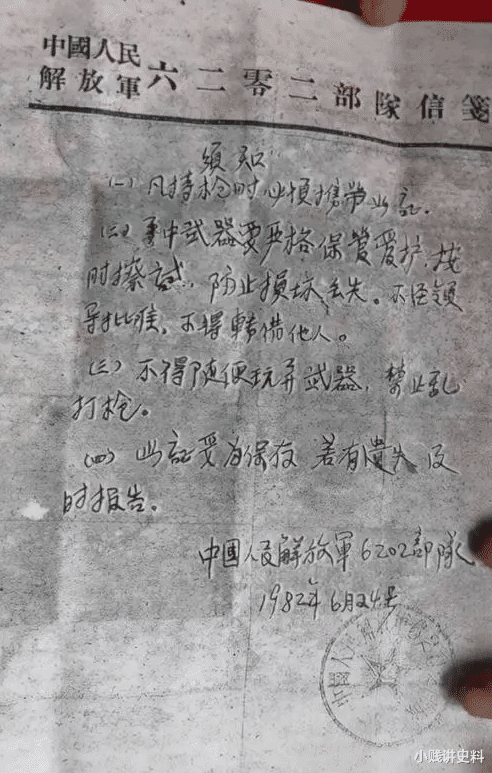 中國人民
解放軍六二零二部隊信箋
須知
(一) 凡持枪时必須携带此証.
(二) 手中武器要严格保管爱护,按
时擦试,防止損坏丢失。不经領
导批准,不得轉借他人。
(三) 不得随便玩弄武器,禁止乱
打枪。
(四) 此証妥为保存 若有遺失 及
时报告。
中國人民解放軍6202部隊
1982年6月24号
中國人民解放軍
小贱讲史料